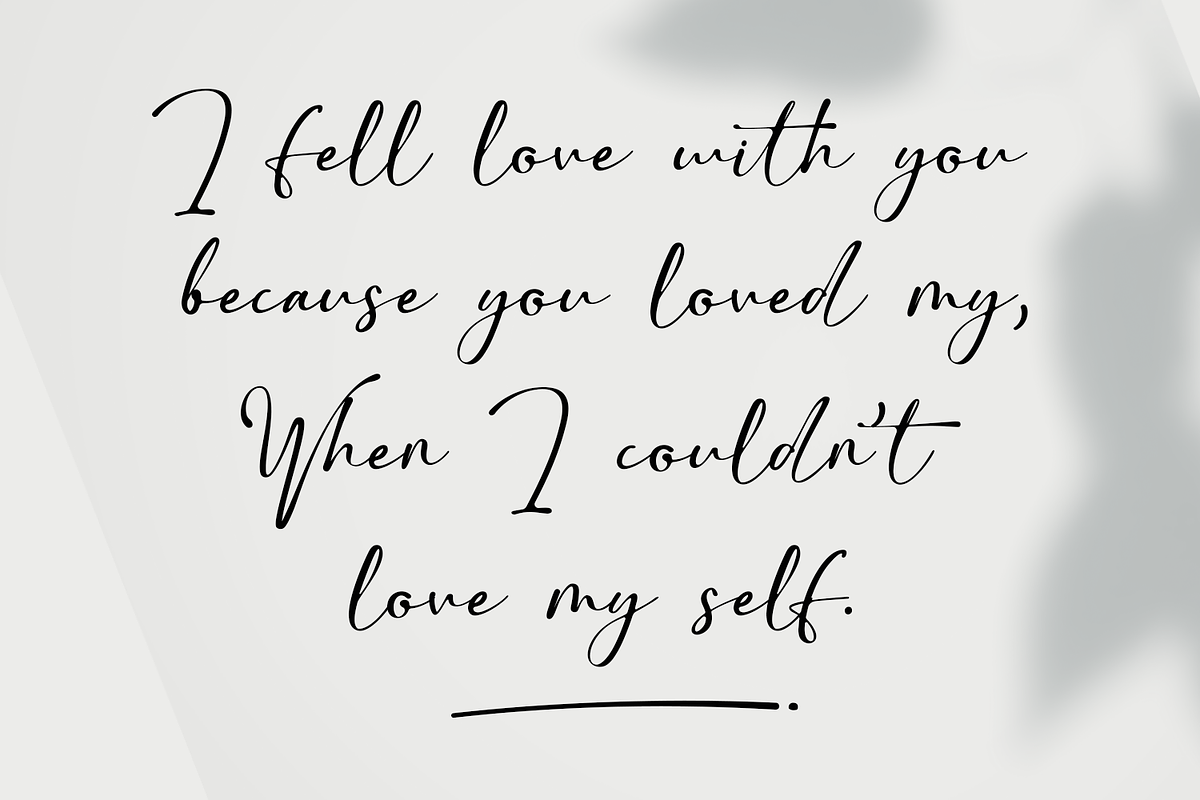 I fell love with you
because you loved my,
When I couldn't
love my self.